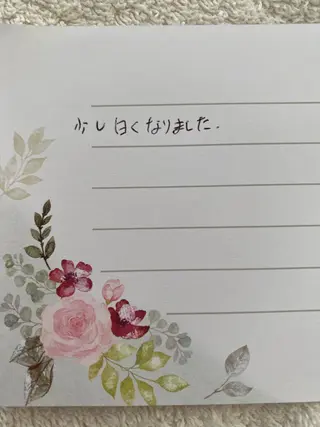 少し白くなりました.